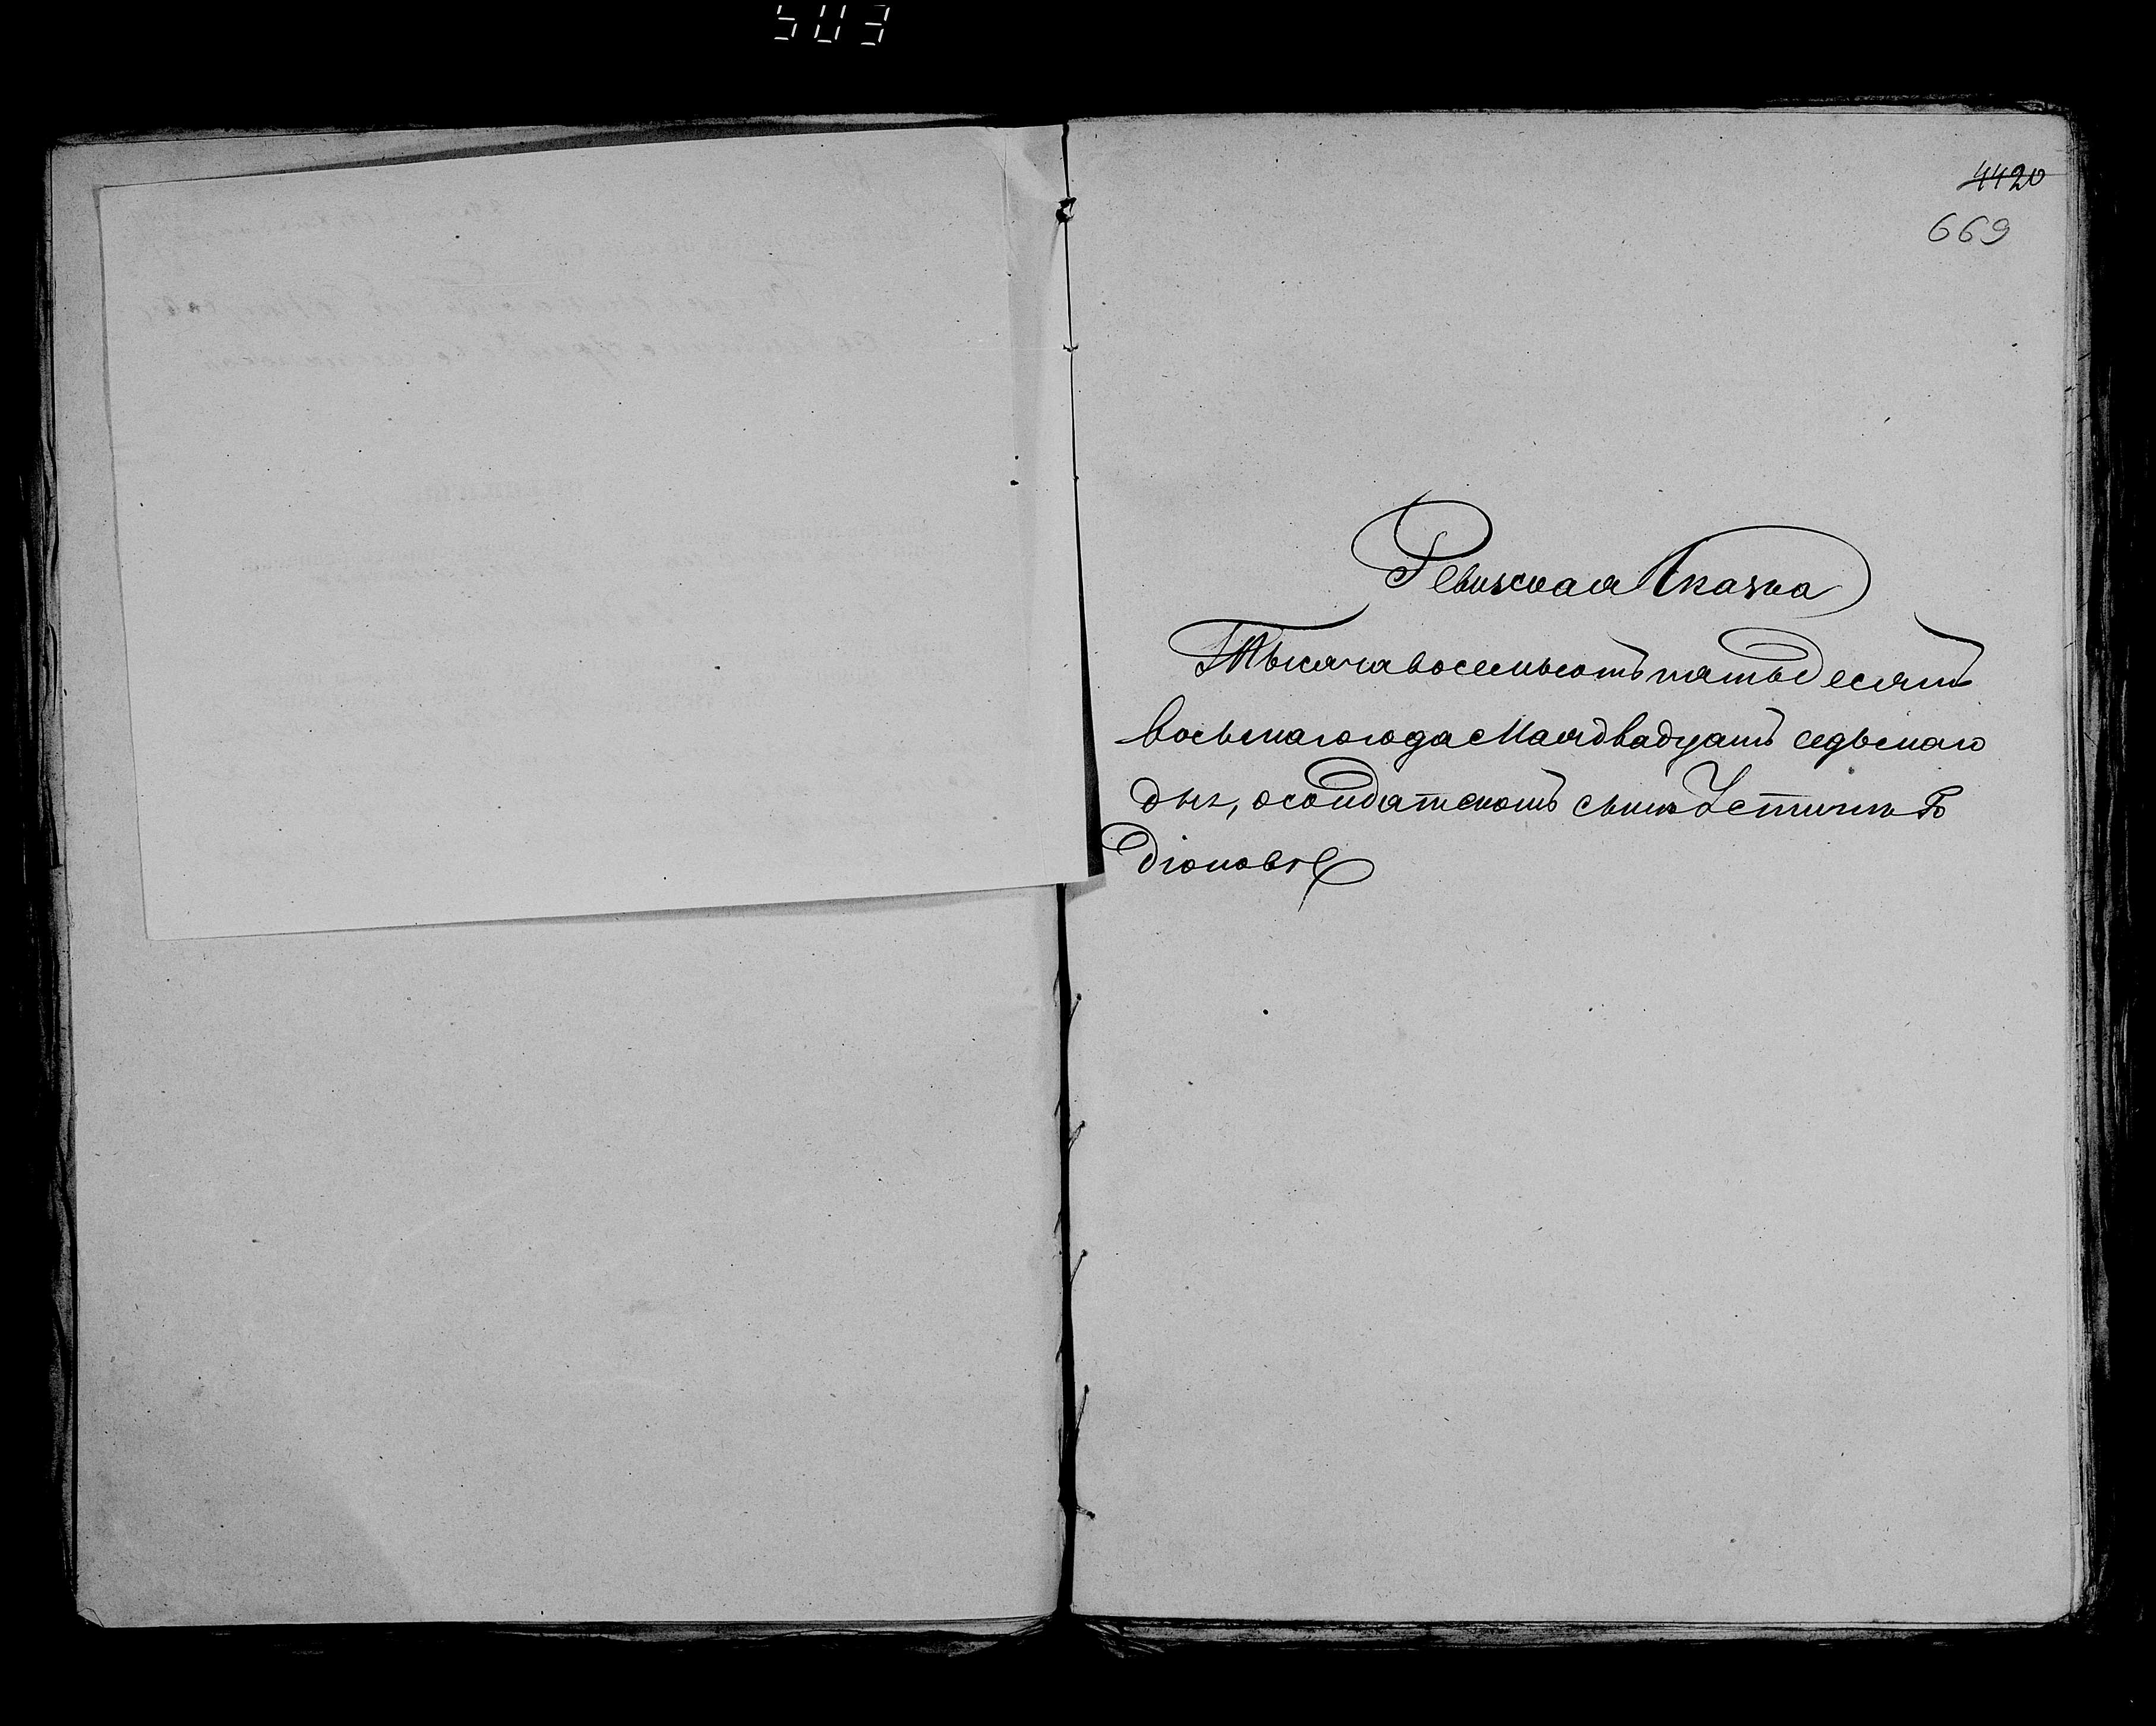 503
4420
669
Ревизская Сказка
Тысяча восемьсотъ пятьдесятъ
восьмаго года Мая двадцать седьмаго
дня, о солдатскомъ сынѣ Устинѣ Ро
діоновѣ